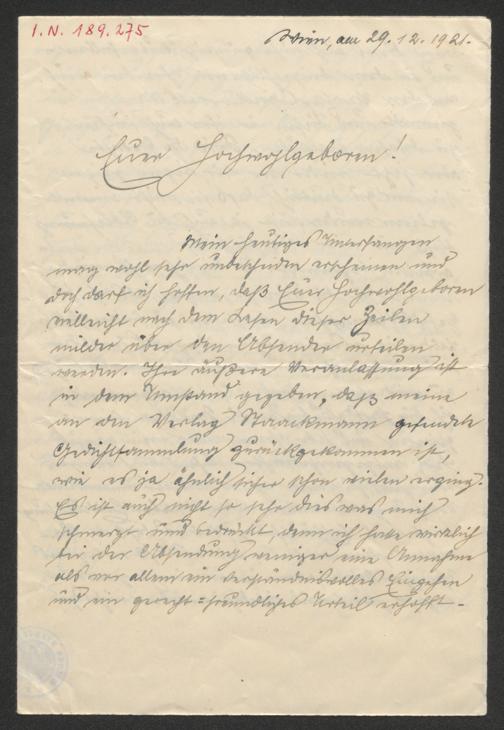 I.N. 189.275
Wien, am 29.12.1921.
Euer Hochwohlgeboren!
Mein heutiges Unterfangen
mag wohl sehr unbescheiden erscheinen und
doch darf ich hoffen, daß Euer Hochwohlgeboren
vielleicht nach dem Lesen dieser Zeilen
milder über den Absender urteilen
werden. Ihre äußere Veranlassung ist
in dem Umstand gegeben, daß meine
an den Verlag Staackmann gesendete
Gedichtsammlung zurückgekommen ist,
wie es ja ähnlich sicher schon vielen erging.
Es ist auch nicht so sehr dies was mich
schmerzt und bedrückt, denn ich habe wirklich
bei der Absendung weniger eine Annahme
als vor allem ein verständnisvolles Eingehen
und ein gerecht=freundliches Urteil erhofft –